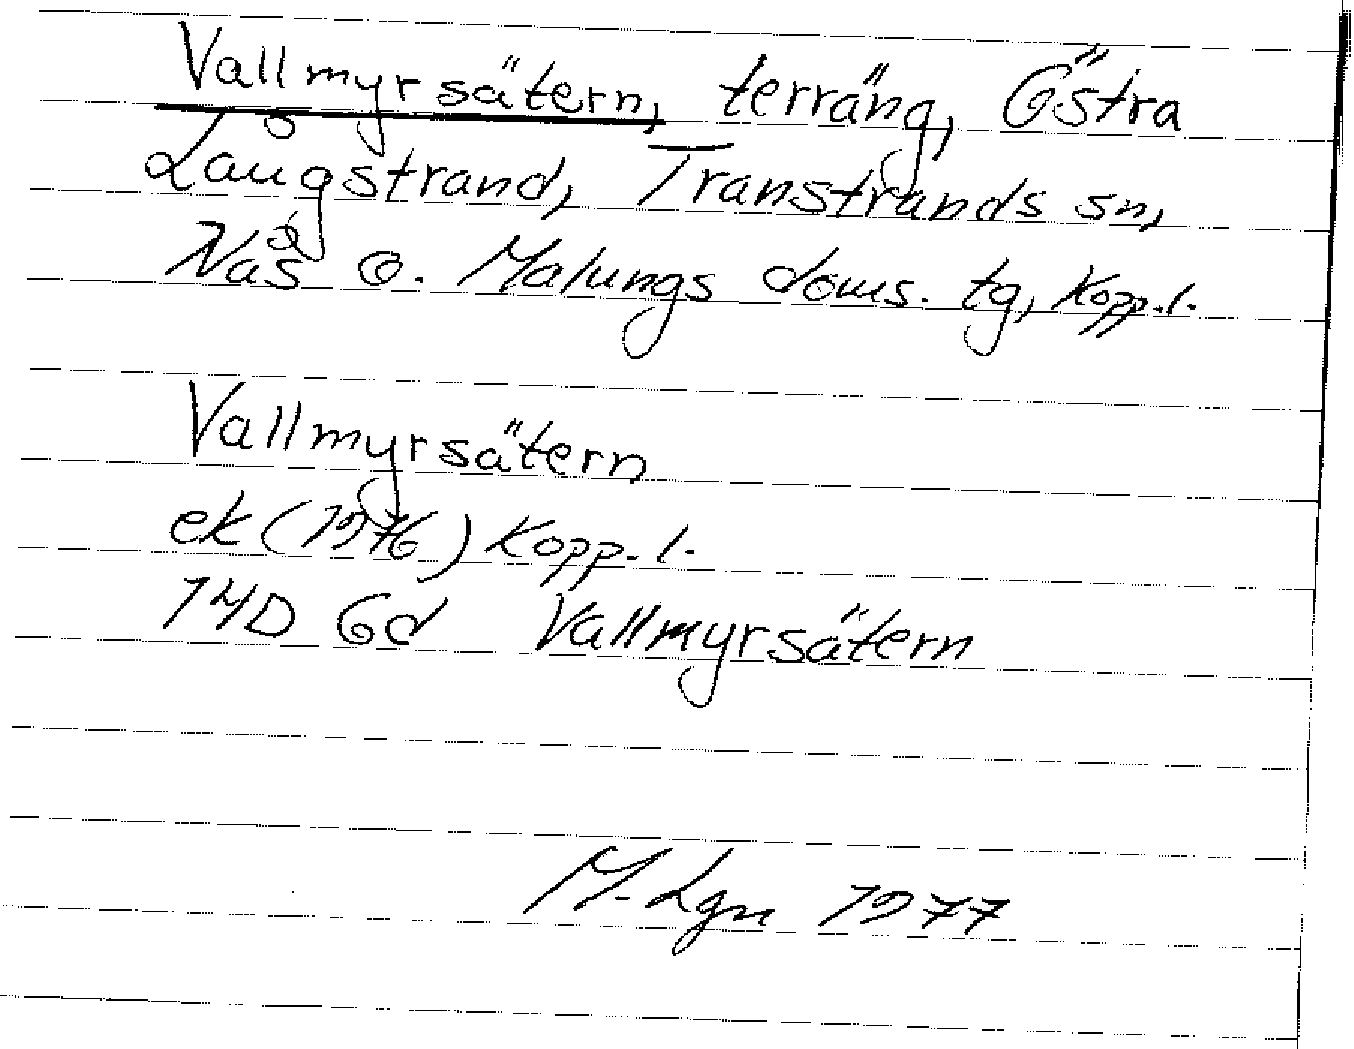 Vallmyrsätern, terräng, Östra
Långstrand, Transtrands sn,
Nås o. Malungs doms. tg, Kopp.l.
Vallmyrsätern
ek (1976) Kopp. l.
14D 6d Vallmyrsätern
M. Lgn 1977